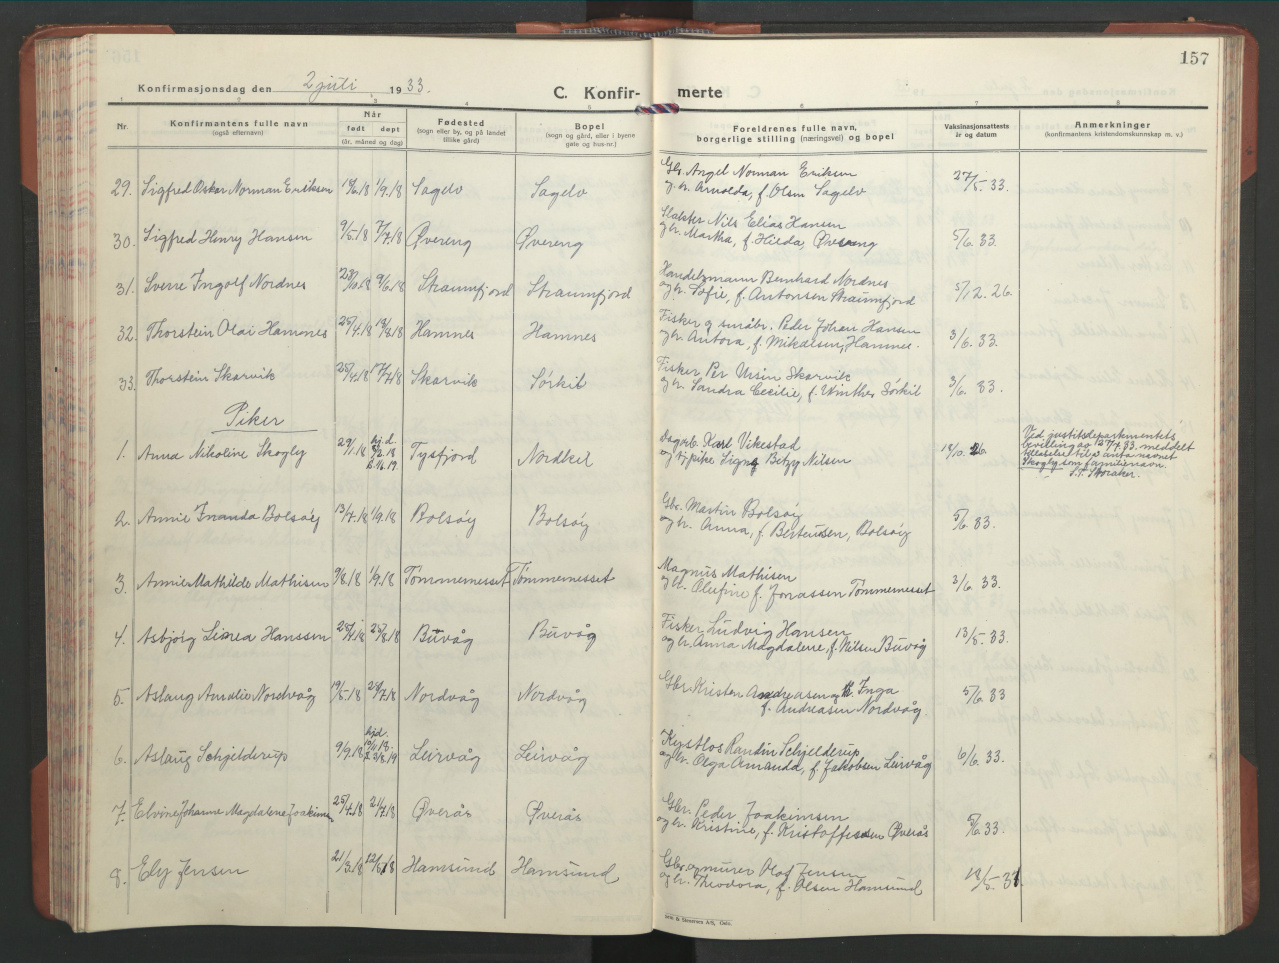 157
Konfirmasjonsdag den 2 juli 1933.
C. Konfirmerte
1 2 3 4 5 6 7 8
Nr.
Konfirmantens fulle navn
(også efternavn)
Når
født døpt
(år, måned og dag)
Fødested
(sogn eller by, og på landet
tillike gård)
Bopel
(sogn og gård, eller i byene
gate og hus-nr.)
Foreldrenes fulle navn,
borgerlige stilling (næringsvei) og bopel
Vaksinasjonsattests
år og datum
Anmerkninger
(konfirmantens kristendomskunnskap m. v.)
29. Sigfred Oskar Norman Eriksen 1/9.18 Sagelv Sagelv
Gbr. Angel Norman Eriksen
og h. Arnolda, f. Olsen Sagelv 27/5.33.
30. Sigfred Henry Hansen 9/5.18 7/7.18 Øvereng Øvereng
Slakter Nils Elias Hansen
og h. Martha, f. Hilda, Øvereng 5/6.33.
31. Sverre Ingolf Nordnes 9/6.18 Straumfjord Straumfjord
Handelsmann Bernhard Nordnes
og h. Sofie, f. Antonsen Straumfjord 5/12.26.
32. Thorstein Olai Hamnes 25/4.18 Hamnes Hamnes
Fisker og småbr. Peder Johan Hansen
og h. Antora, f. Mikalsen, Hamnes. 3/6.33.
33. Thorstein Skarvik 25/4.18 17/7.18 Skarvik Sørkil
Fisker Per Ursin Skarvik
og h. Sandra Cecilie, f. Winther Sørkil 3/6.33.
Piker
1. Anna Nikoline Skogly 29/1.18 hj.d. Tysfjord Nordkil
Dagarb. Karl Vikestad
og pike Signe Betzy Nilsen 18/10.26.
Ved justitsdepartementets
bevilling av 27/4.33. meddelt
tillatelse til å anta navnet
Skogly som familienavn.
2. Annie Fnanda Bolsøy 13/7.18 1/9.18 Bolsøy Bolsøy
Gbr. Martin Bolsøy
og h. Anna, f. Bertensen, Bolsøy 5/6.33.
3. Annie Mathilde Mathisen 9/8.18 1/9.18 Tømmernesset Tømmernesset
Magnus Mathisen
og h. Olufine f. Jonassen Tømmernesset 2/6.33.
4. Asbjørg Linea Hanssen 25/8.18 Buvåg Buvåg
Fisker Ludvig Hansen
og h. Anna Magdalene, f. Nilsen Buvåg 13/5.33.
5. Aslaug Amalie Nordvåg 19/5.18 28/7.18 Nordvåg Nordvåg
Gbr. Kristen Andreasen og h. Inga
f. Andreasen Nordvåg 5/6.33
6. Aslaug Schjelderup 9/9.18 hjd. Leirvåg Leirvåg
Randin Schjelderup
og h. Olga Amanda, f. Jakobsen Leirvåg 6/6.33.
7. Elvine Johanne Magdalene Joakimsen 25/4.18 21/7.18 Øverås Øverås
Gbr. Peder Joakimsen
og h. Kristine, f. Kristoffersen Øverås 5/6.33.
8. Ely Jensen 21/3.18 12/5.18 Hamsund Hamsund
Gbr. og murer Olaf Jensen
og h. Theodora, f. Olsen Hamsund 18/5.31